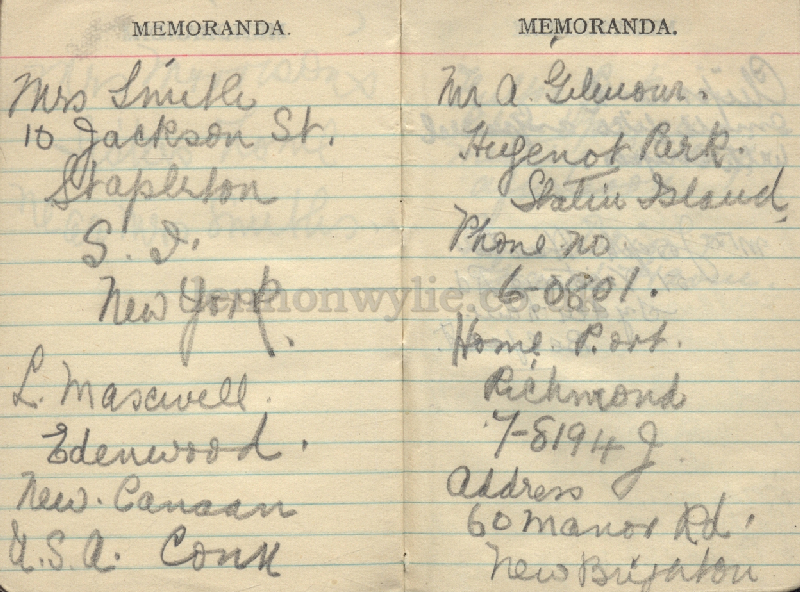 MEMORANDA.
Mrs Smith
10 Jackson St.
Stapleton
S. I.
New York.
L. Maxwell.
Edenwood.
New. Canaan
U.S.A. Conn
MEMORANDA.
Mr A. Gilmour.
Hugenot Park.
Statin Island,
Phone no
6-0801.
Home Port.
Richmond
7-8194 J
Address
60 Manor Rd.
New Brighton
lennonwylie.co.uk